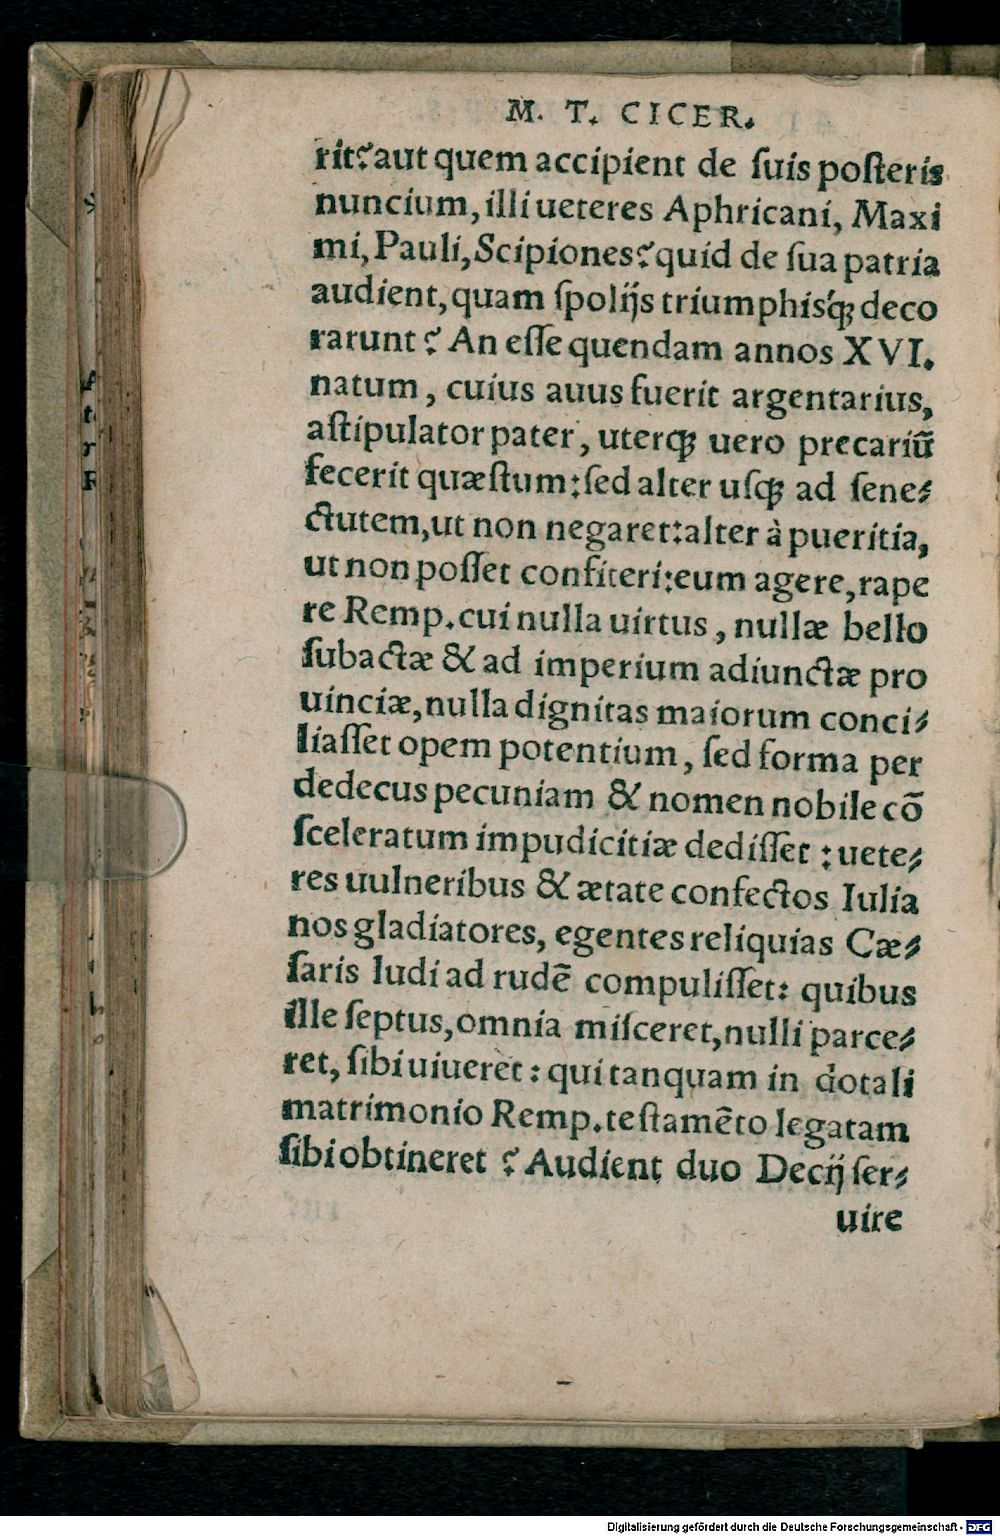 M. T. CICER.
rit? aut quem accipient de ſuis poſteris
nuncium, illi ueteres Aphricani, Maxi
mi, Pauli, Scipiones? quid de ſua patria
audient, quam ſpolijs triumphisq́ꝫ deco
rarunt? An eſſe quendam annos XVI.
natum, cuius auus fuerit argentarius,
aſtipulator pater, uterqꝫ uero precariũ
fecerit quæſtum: ſed alter uſqꝫ ad ſene⸗
ctutem, ut non negaret: alter à pueritia,
ut non poſſet confiteri: eum agere, rape
re Remp. cui nulla uirtus, nullæ bello
ſubactæ & ad imperium adiunctæ pro
uinciæ, nulla dignitas maiorum conci⸗
liaſſet opem potentium, ſed forma per
dedecus pecuniam & nomen nobile cõ
ſceleratum impudicitiæ dediſſet: uete⸗
res uulneribus & ætate confectos Iulia
nos gladiatores, egentes reliquias Cæ⸗
ſaris ludi ad rudẽ compuliſſet: quibus
ille ſeptus, omnia miſceret, nulli parce⸗
ret, ſibi uiueret: qui tanquam in dotali
matrimonio Remp. teſtamẽto legatam
ſibi obtineret? Audient duo Decij ſer⸗
uire
Digitalisierung gefördert durch die Deutsche Forschungsgemeinschaft - DFG